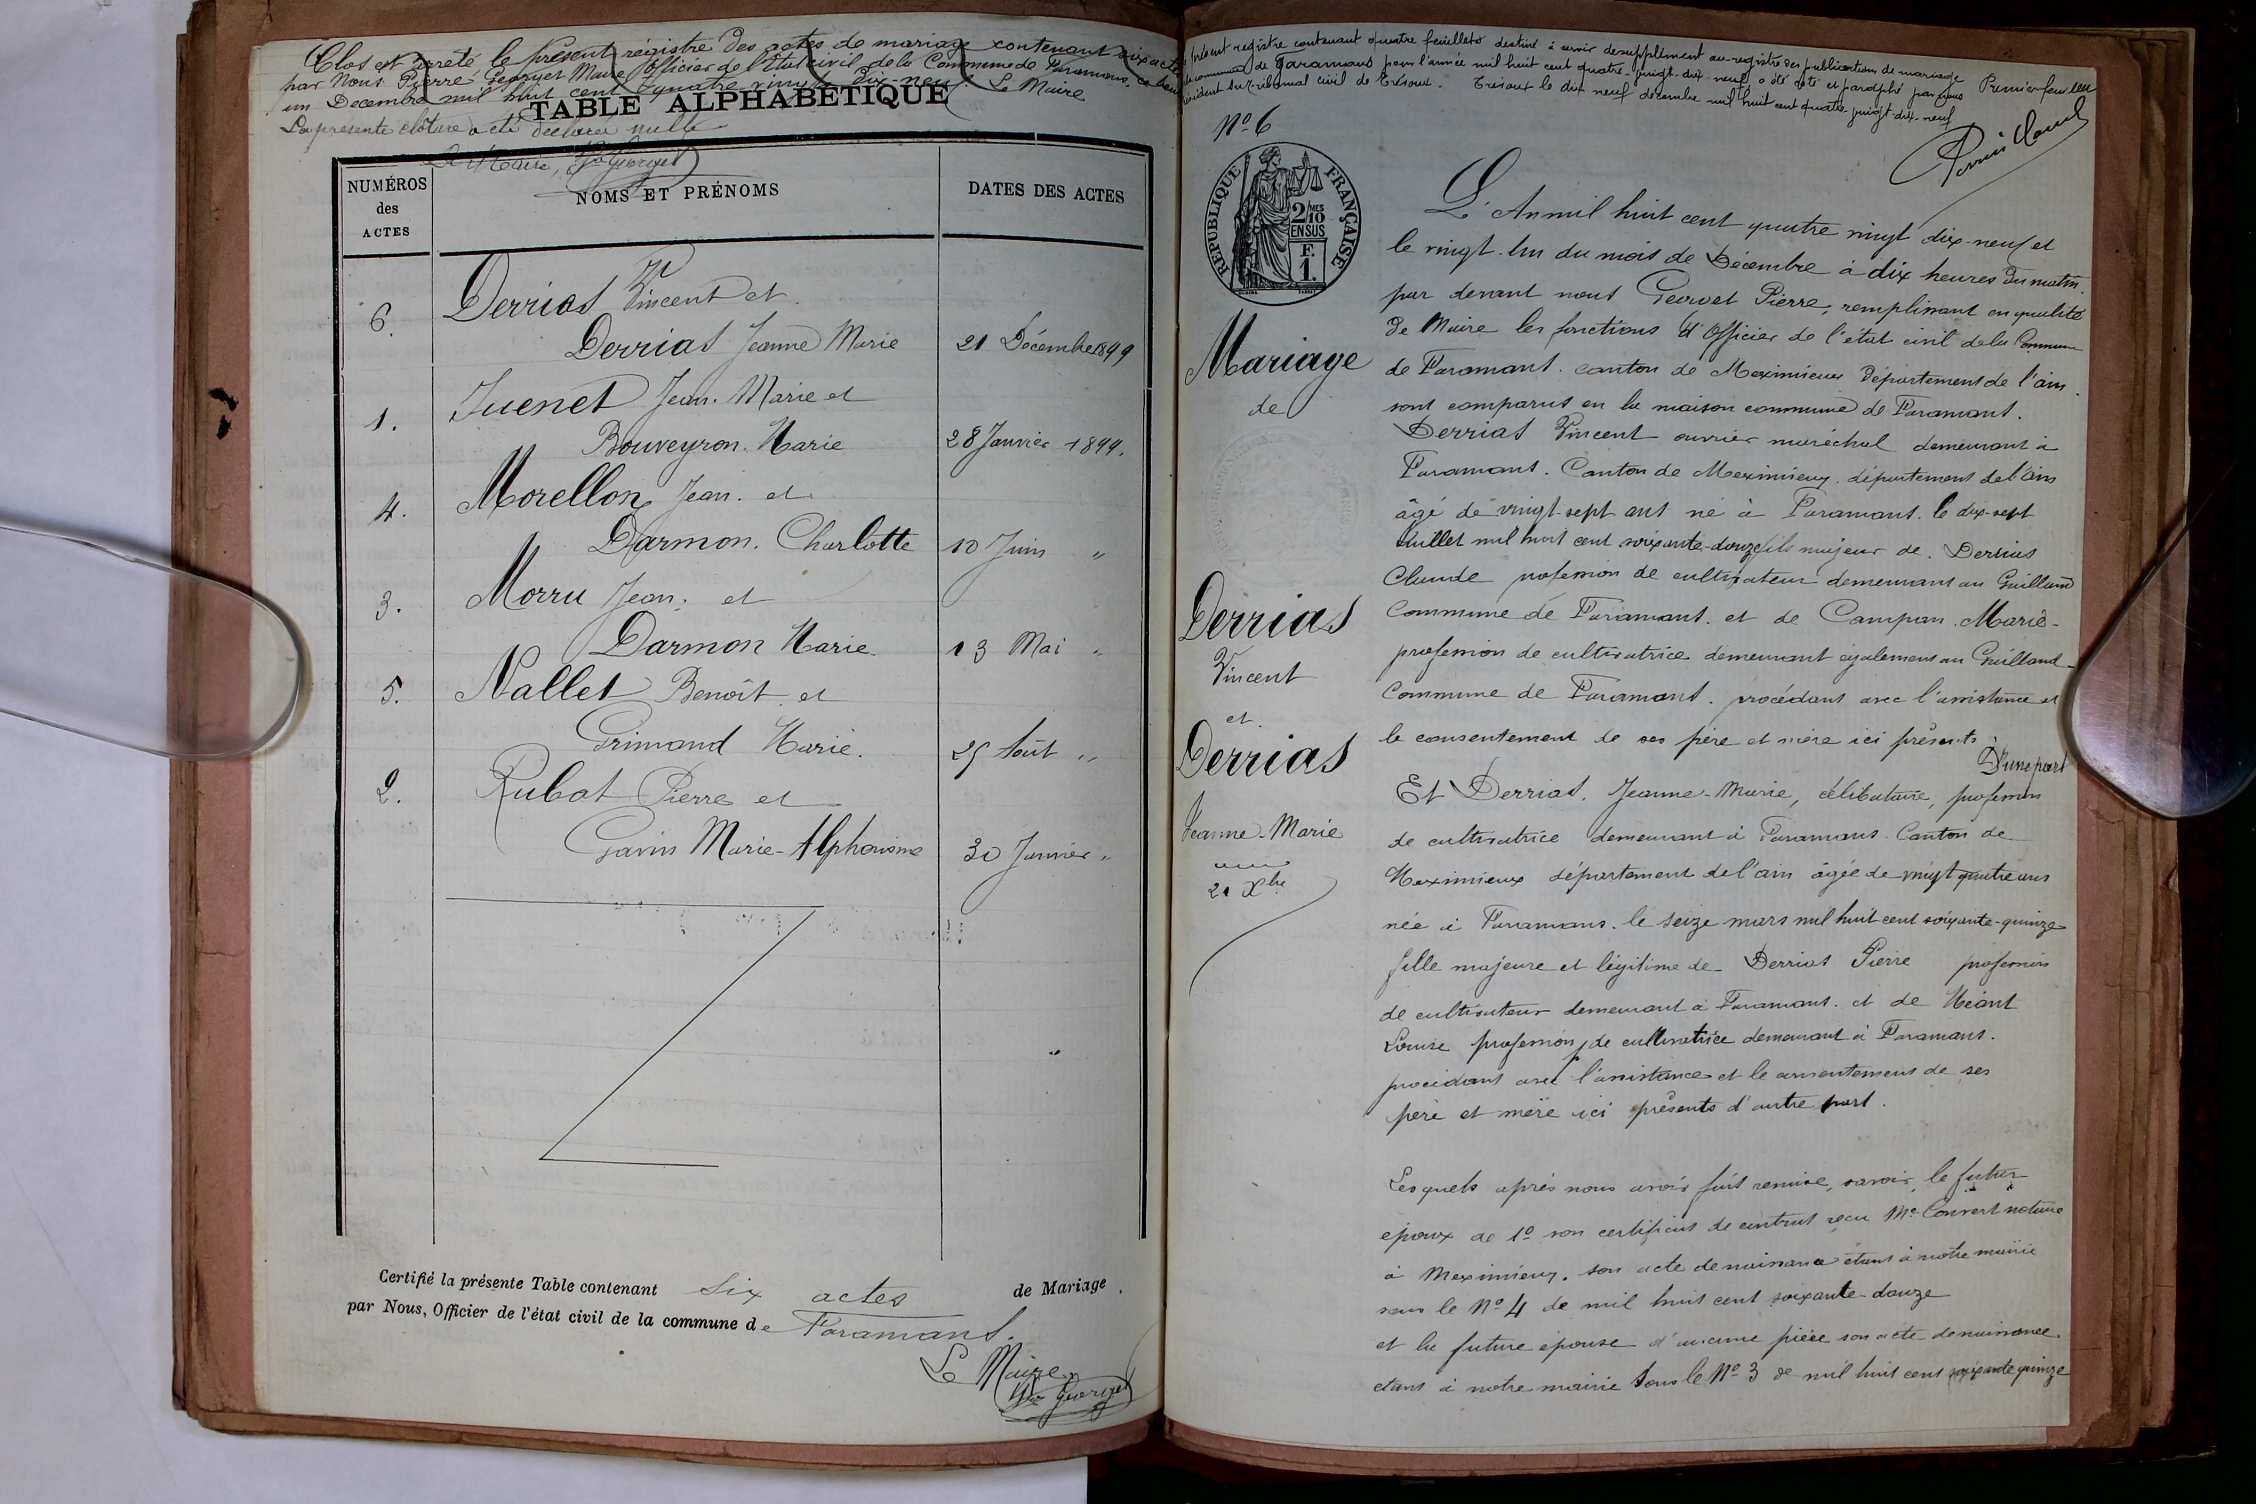 Clos et arreté le présent régistre des actes de mariage contenant six actes
par Nous Pierre Georget Maire Officier de l'Etat civil de la Commune de Faramans, ce
un Decembre mil huit cent quatre vingt dix-neuf. Le Maire
La présente clôture a été déclarée nulle
Le Maire, Georget
TABLE ALPHABÉTIQUE
NUMÉROS des ACTES
NOMS ET PRÉNOMS
DATES DES ACTES
6. Derrias Vincent et
Derrias Jeanne Marie 21 Décembre 1899
1. Juenet Jean-Marie et
Bouveyron Marie 28 Janvier 1899.
4. Morellon Jean et
Darmon Charlotte 10 Juin "
3. Morru Jean et
Darmon Marie 13 Mai "
5. Nallet Benoît et
Grimand Marie. 25 Août "
2. Rubat Pierre et
Gavin Marie-Alphonsine 30 Janvier "
Certifié la présente Table contenant Six actes de Mariage
par Nous, Officier de l'état civil de la commune de Faramans.
Le Maire
Georget
présent registre contenant quatre feuillets destiné à servir de supplément au registre des publications de mariage
commune de Faramans pour l'année mil huit cent quatre-vingt-dix-neuf a été coté et paraphé par nous
Président du tribunal civil de Trévoux. Trévoux le dix neuf décembre mil huit cent quatre vingt-dix-neuf
Premier feuillet
No 6
RÉPUBLIQUE FRANÇAISE
2/10MES EN SUS
F. 1.
Mariage
de
Derrias
Vincent
et
Derrias
Jeanne-Marie
21 Xbre
L'An mil huit cent quatre vingt dix-neuf et
le vingt-un du mois de Décembre à dix heures du matin.
par devant nous Georget Pierre, remplissant en qualité
de Maire les fonctions d'Officier de l'état civil de la Commune
de Faramans. canton de Meximieux Département de l'ain.
sont comparus en la maison commune de Faramans.
Derrias Vincent ouvrier maréchal demeurant à
Faramans. Canton de Meximieux. département de l'ain
âgé de vingt-sept ans né à Faramans. le dix-sept
Juillet mil huit cent soixante-douze fils majeur de. Derrias
Claude profession de cultivateur demeurant au Guilland
Commune de Faramans. et de Campan. Marie-
profession de cultivatrice demeurant également au Guilland-
Commune de Faramans. procédant avec l'assistance et
le consentement de ses père et mère ici présents
D'une part
Et Derrias. Jeanne-Marie, célibataire, profession
de cultivatrice demeurant à Faramans Canton de
Meximieux département de l'ain âgée de vingt quatre ans
née à Faramans. le seize mars mil huit cent soixante-quinze
fille majeure et légitime de Derrias Pierre profession
de cultivateur demeurant à Faramans. et de Méant
Louise profession de cultivatrice demeurant à Faramans.
procédant avec l'assistance et le consentement de ses
père et mère ici présents d'autre part.
Lesquels après nous avoir fait remise, savoir, le futur
époux de 1o son certificat de contrat reçu Me Convert notaire
à Meximieux. son acte de naissance étant à notre mairie
sous le No 4 de mil huit cent soixante-douze
et la future épouse d'aucune pièce son acte de naissance
etant à notre mairie sous le No 3 de mil huit cent soixante quinze